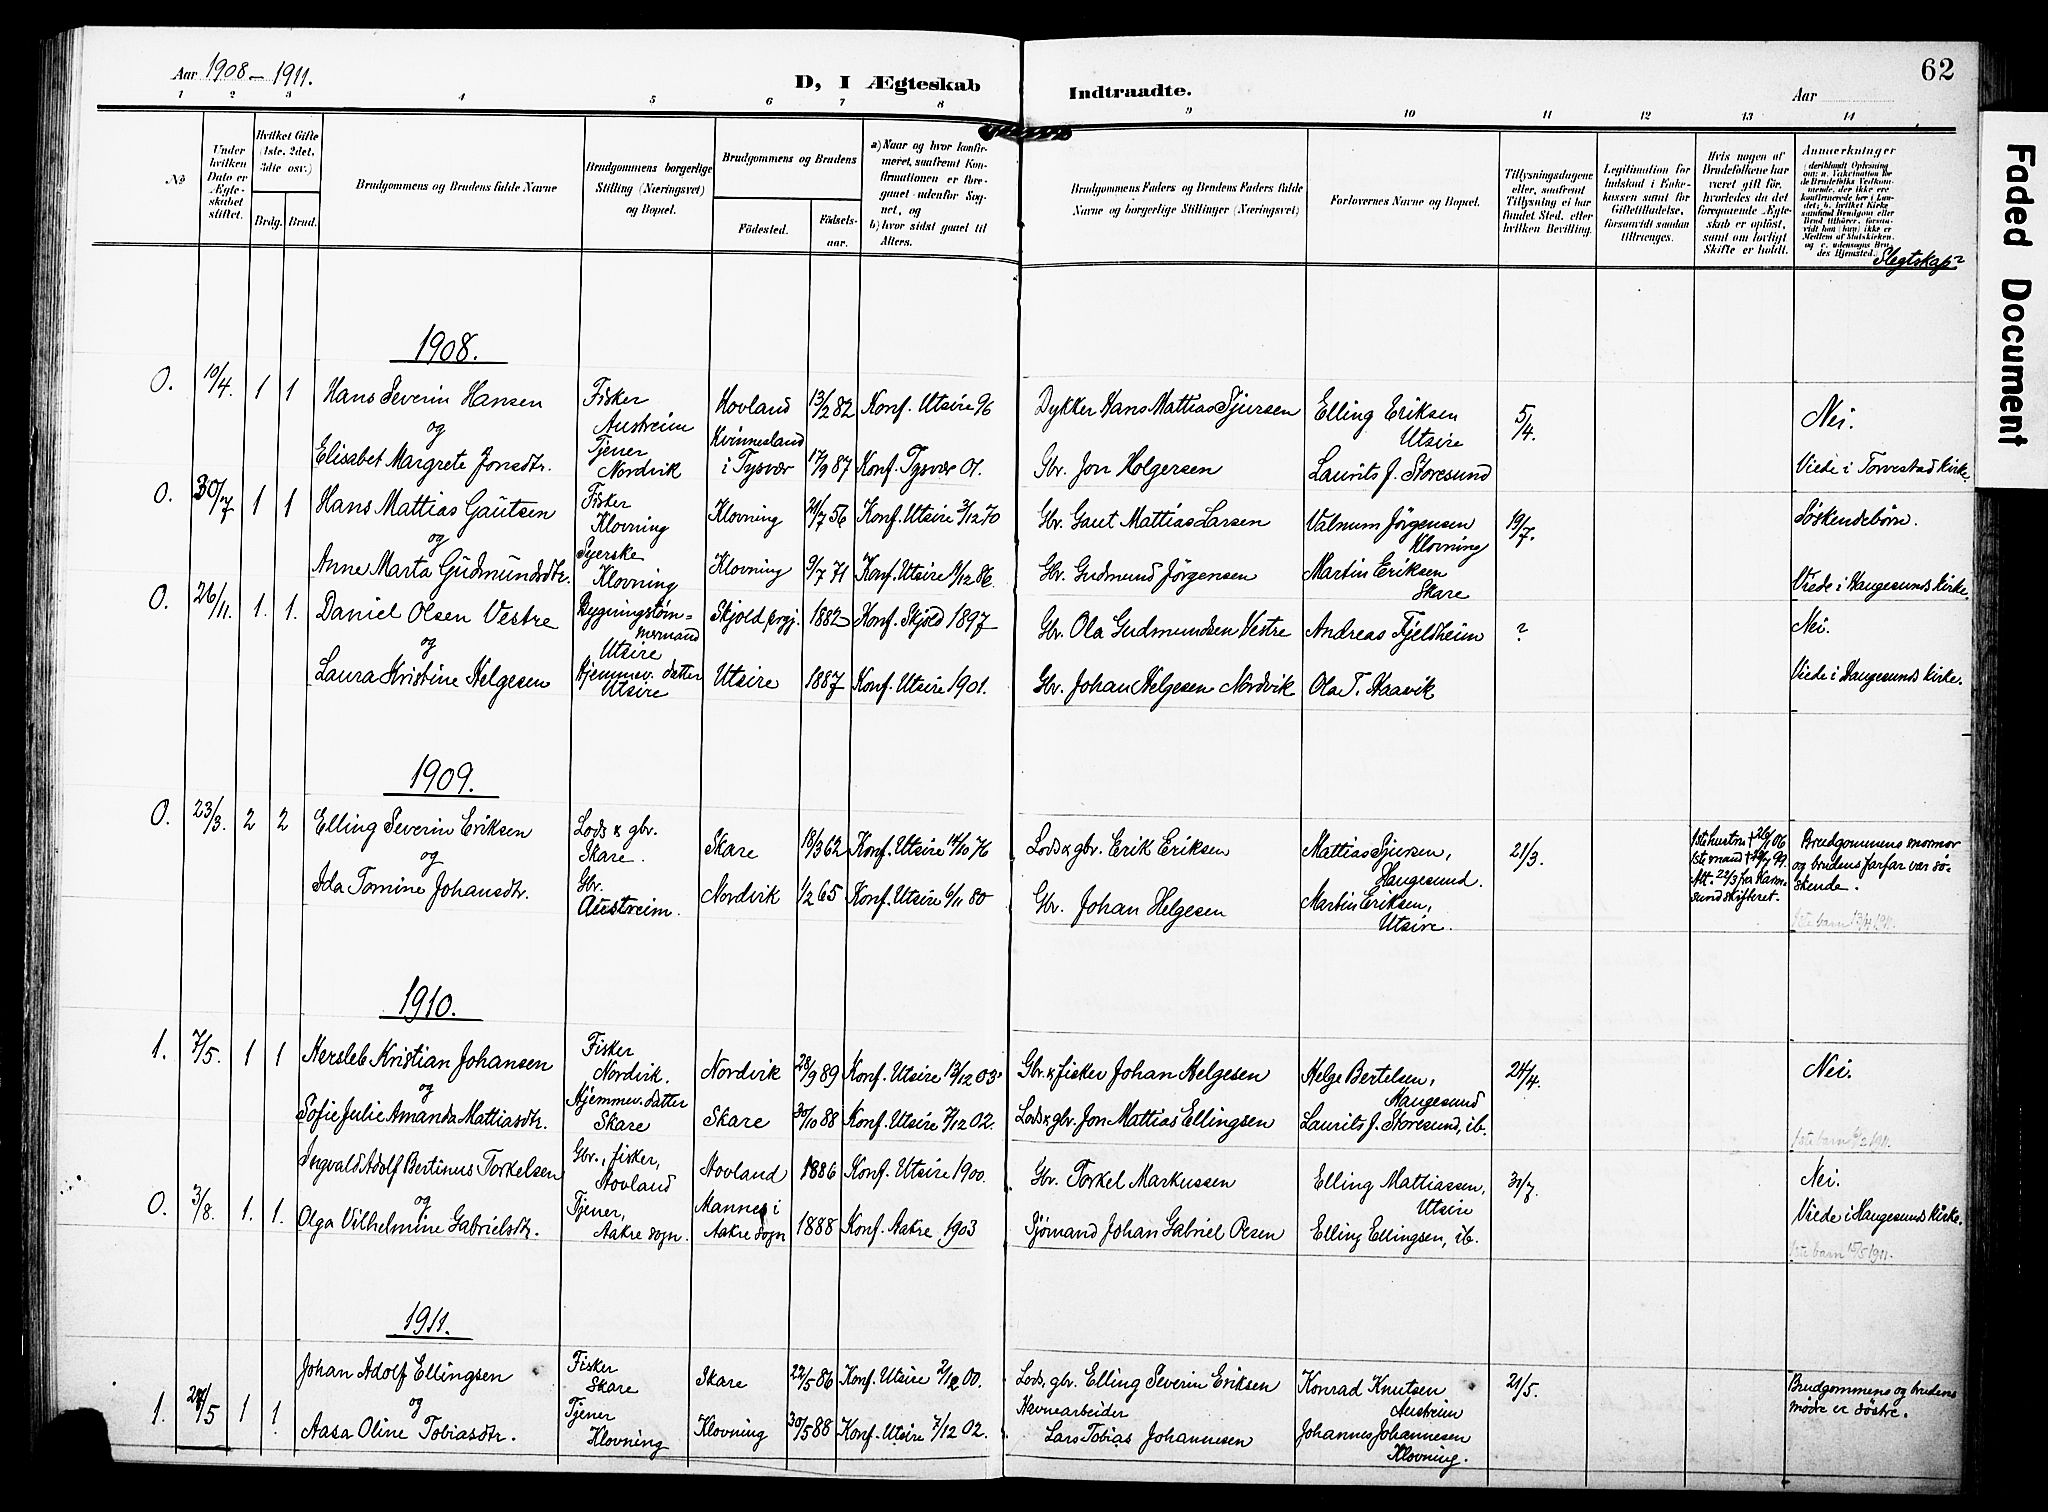 Aar 1908–1911.
D, I Ægteskab Indtraadte.
Aar
62
Faded Document
1 2 3 4 5 6 7 8 9 10 11 12 13 14
№
Under hvilken Dato er Ægteskabet stiftet.
Hvilket Gifte (1ste, 2det, 3dte osv.)
Brdg. Brud.
Brudgommens og Brudens fulde Navne
Brudgommens borgerlige Stilling (Næringsvei) og Bopæl.
Brudgommens og Brudens
Fødested.
Fødselsaar.
a) Naar og hvor konfirmeret, saafremt Konfirmationen er foregaaet udenfor Sognet, og
b) hvor sidst gaaet til Alters.
Brudgommens Faders og Brudens Faders fulde Navne og borgerlige Stillinger (Næringsvei)
Forlovernes Navne og Bopæl.
Tillysningsdagene eller, saafremt Tillysning ei har fundet Sted, efter hvilken Bevilling.
Legitimation for Indskud i Enkekassen samt for Giftetilladelse, forsaavidt saadan tiltrænges.
Hvis nogen af Brudefolkene har været gift før, hvorledes da det foregaaende Ægteskab er opløst, samt om lovligt Skifte er holdt.
Anmærkninger
Slegtskap?
1908.
0. 10/4. 1 1 Hans Severin Hansen Fisker Austreim Hovland 13/2 82 Konf. Utsire 96 Dykker Hans Mattias Sjursen Elling Eriksen Utsire 5/4. Nei.
og
Elisabet Margrete Jonsdtr. Tjener Nordvik Kvinnesland i Tysvær 17/9 87 Konf. Tysvær 01. Gbr. Jon Holgersen Laurits J. Storesund Viede i Torvestad Kirke.
0. 30/7 1 1 Hans Mattias Gautsen Fisker Klovning Klovning 21/7 56 Konf. Utsire 3/12 70 Gbr. Gaut Mattias Larsen Valnum Jørgensen Klovning 19/7. Søskendebørn.
og
Anne Marta Gudmundsdtr. Syerske Klovning Klovning 9/7 71 Konf. Utsire 9/12 86. Gbr. Gudmund Jørgensen Martin Eriksen Skare Viede i Haugesunds Kirke.
0. 26/11. 1. 1. Daniel Olsen Vestre Bygningstømmermand Utsire Skjold prgj. 1882 Konf. Skjold 1897 Gbr. Ola Gudmundsen Vestre Andreas Fjeldheim ? Nei.
og
Laura Kristine Helgesen Hjemmev. datter Utsire Utsire 1887 Konf. Utsire 1901. Gbr. Johan Helgesen Nordvik Ola T. Haavik Viede i Haugesunds Kirke.
1909.
0. 23/3. 2 2 Elling Severin Eriksen Lods & gbr. Skare. Skare 18/3 62 Konf. Utsire 14/10 76 Lods & gbr. Erik Eriksen Mattias Sjursen, Haugesund. 21/3. 1ste hustru † 26/1 06 1ste mand † 19/7 99. Att. 22/3 fra Karmsund skifteret. Brudgommens mormor og brudens farfar var søskende.
og
Ida Tomine Johansdtr. Gbr. Austreim. Nordvik 1/2 65 Konf. Utsire 6/11 80 Gbr. Johan Helgesen Martin Eriksen, Utsire. 1ste barn 13/4 1911.
1910.
1. 7/5. 1 1 Hersleb Kristian Johansen Fisker Nordvik. Nordvik 28/9 89 Konf. Utsire 13/12 03. Gbr. & fisker Johan Helgesen Helge Bertelsen, Haugesund 24/4. Nei.
og
Sofie Julie Amanda Mattiasdtr. Hjemmev. datter Skare Skare 30/10 88 Konf. Utsire 7/12 02. Lods & gbr. Jon Mattias Ellingsen Laurits J. Storesund, ib. 1ste barn 1911.
Ingvald Adolf Bertinus Torkelsen Gbr., fisker, Hovland Hovland 1886 Konf. Utsire 1900. Gbr. Torkel Markussen Elling Mattiassen, Utsire 31/7. Nei.
0. 3/8. 1. 1. og
Olga Vilhelmine Gabrielsdtr. Tjener, Aakre sogn. Mannes i Aakre sogn 1888 Konf. Aakre 1903 Sjømand Johan Gabriel Olsen Elling Ellingsen, ib. Viede i Haugesunds kirke.
1ste barn 1911.
1911.
Johan Adolf Ellingsen Fisker Skare Skare 22/5 86 Konf. Utsire 2/12 00. Lods, gbr. Elling Severin Eriksen Konrad Knutsen Austreim 21/5. Brudgommens og brudens mødre er søstre.
1. 24/5 1 1. og
Aasa Oline Tobiasdtr. Tjener Klovning Klovning 30/5 88 Konf. Utsire 7/12 02. Havnearbeider Lars Tobias Johannesen Johannes Johannesen Klovning.